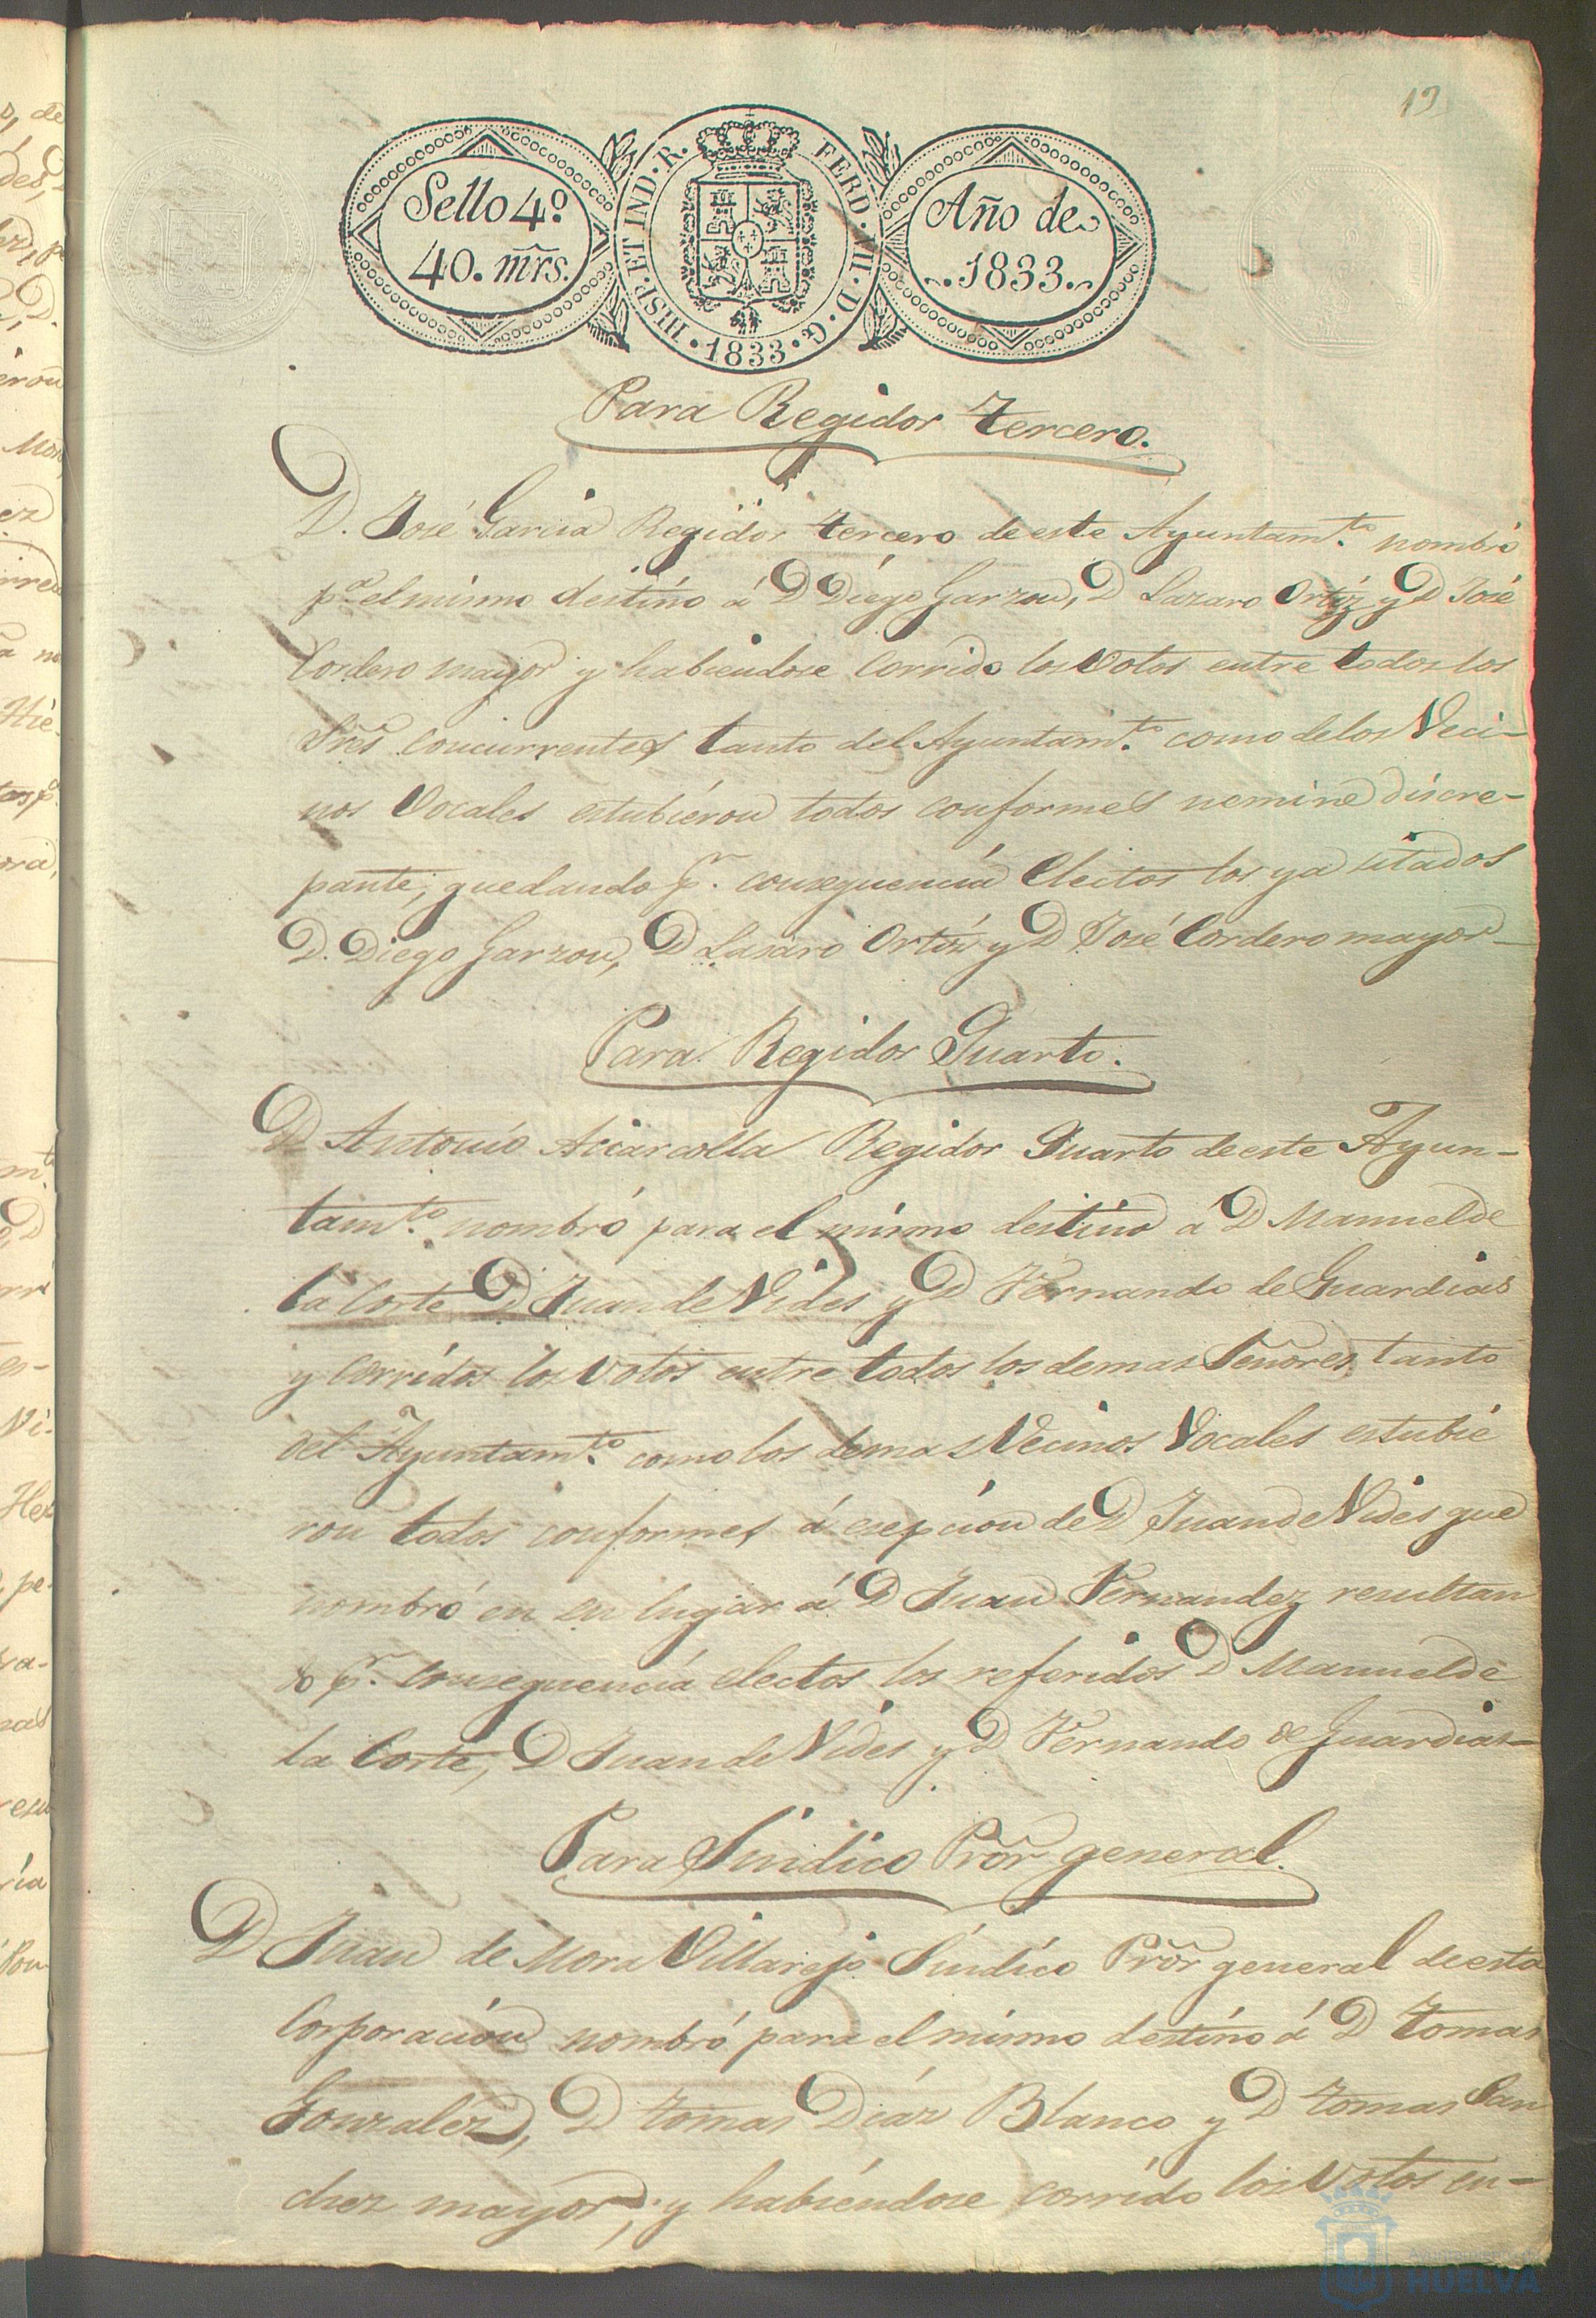 19
Sello 4º
40. mrs.
HISP. ET IND. R. FERD. VII. D. G. 1833
Año de
1833.
Para Regidor tercero.
D. José Garcia Regidor tercero de este Ayuntamto. nombró
pa. el mismo destino á D Diego Garzon, D Lazaro Ortiz y D José
Cordero mayor y habiendose corrido los votos entre todos los
Sres concurrentes tanto del Ayuntamto. como de los Veci-
nos Vocales estubieron todos conformes nemine discre-
pante, quedando pr. consequencia electos los ya citados
D. Diego Garzon, D Lasaro Ortiz y D José Cordero mayor
Para Regidor Quarto.
D Antonio Aciarcolla Regidor Quarto de este Ayun-
tamto. nombró para el mismo destino á D Manuel de
la Corte D Juan de Vides y D Fernando de Guardias
y corridos los votos entre todos los demas Señores, tanto
del Ayuntamto. como los demas Vecinos Vocales estubie
ron todos conformes á esepcion de D Juan de Vides que
nombró en su lugar á D Juan Fernandez resultan
do pr. consequencia electos los referidos D Manuel de
la Corte, D Juan de Vides y D Fernando de Guardias
Para Sindico Pror general.
D Juan de Mora Villarejo Sindico Pror general de esta
Corporación nombró para el mismo destino á D Tomas
Gonzalez, D Tomas Diaz Blanco y D Tomas San
chez mayor, y habiéndose corrido los votos en-
HUELVA